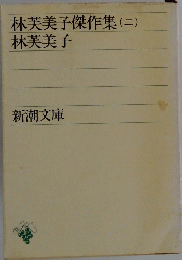 林芙美子傑作集(二)
林芙美子
新潮文庫